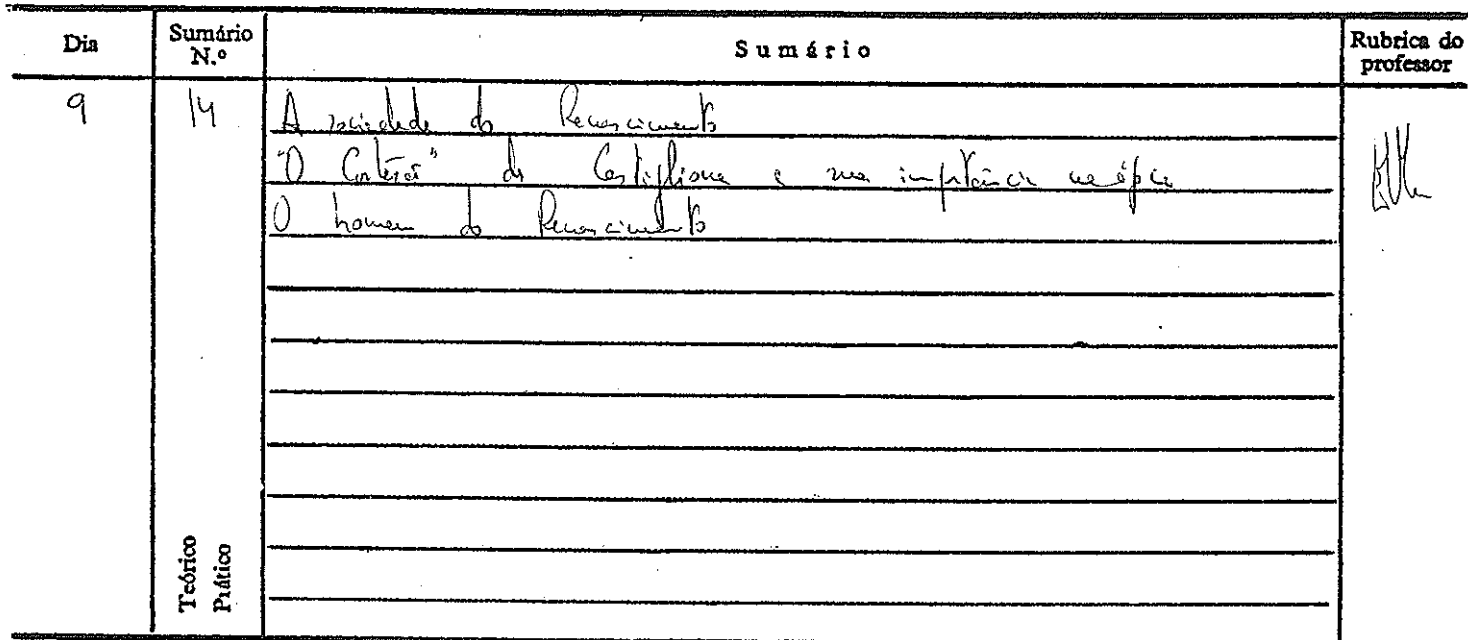 Dia
Sumário N.º
Sumário
Rubrica do professor
9
14
A sociedade do Renascimento
"O Cortesão" de Castiglione e sua importância na época
O homem do Renascimento
Teórico
Prático